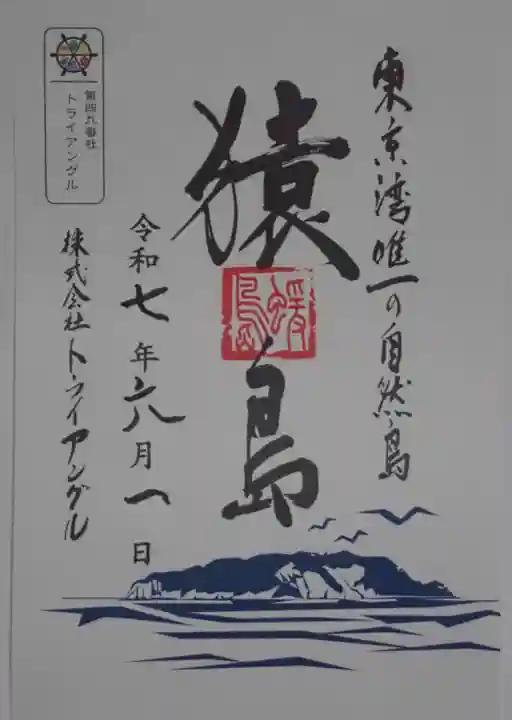 東京湾唯一の自然島
猿島
令和七年六月一日
株式会社トライアングル
第四九番社
トライアングル